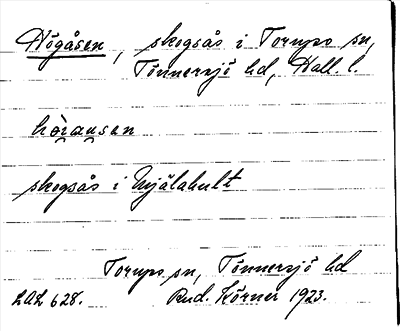 Högåsen, skogsås i Torups sn,
Tönnersjö hd, Hall. l.
skogsås i Mjälahult
Torups sn, Tönnersjö hd
LAL 628. Rud. Körner 1923.